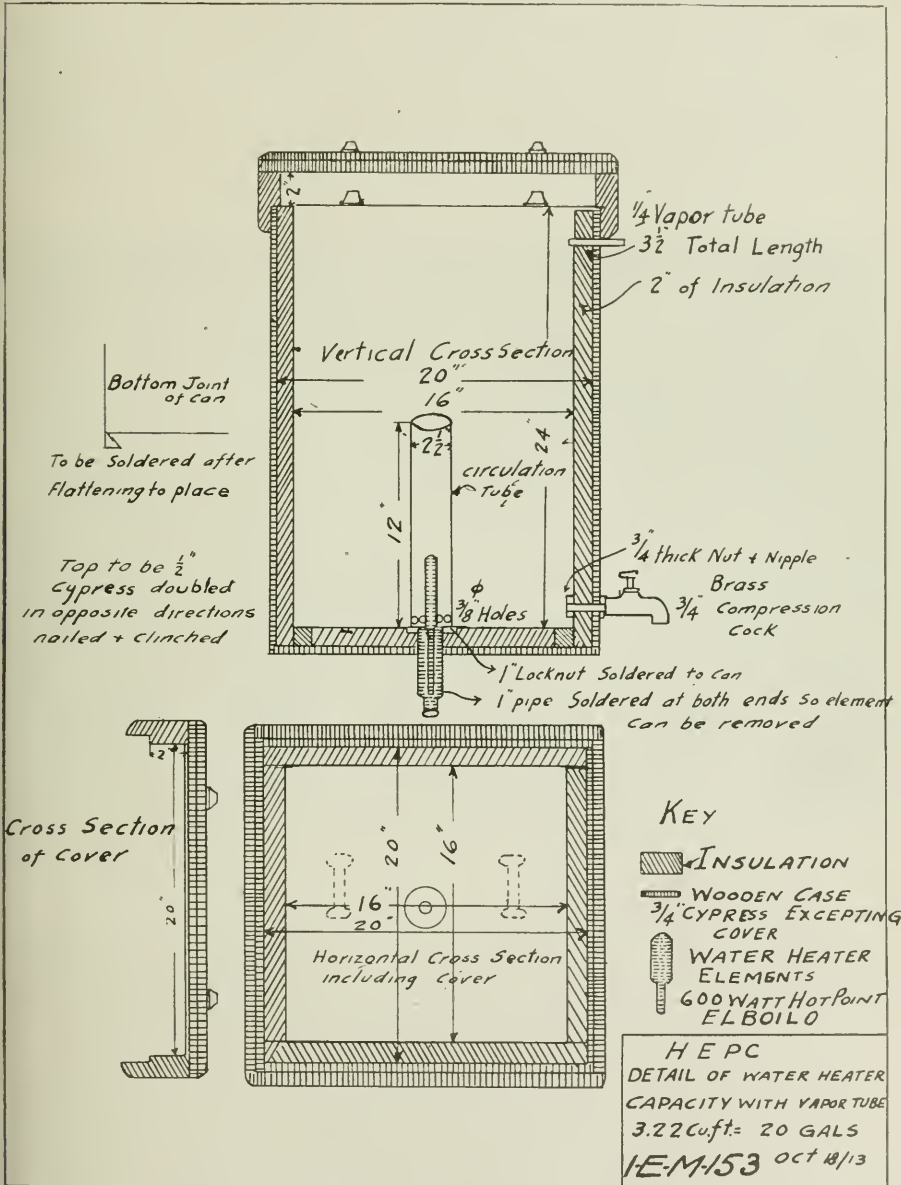 2"
1/4" Vapor tube
3 1/2" Total Length
2" of Insulation
Vertical Cross Section
20"
16"
2 1/2"
24"
12"
circulation
Tube
Bottom Joint
of Can
To be Soldered after
Flattening to place
Top to be 1/2"
Cypress doubled
in opposite directions
nailed + Clinched
ϕ
3/8" Holes
3/4" thick Nut + Nipple
Brass
3/4" Compression
Cock
1" Locknut Soldered to can
1" pipe Soldered at both ends so element
can be removed
Cross Section
of Cover
2"
20"
20"
16"
16"
20"
Horizontal Cross Section
including Cover
KEY
INSULATION
WOODEN CASE
3/4" CYPRESS EXCEPTING
COVER
WATER HEATER
ELEMENTS
600 WATT HOT POINT
ELBOILO
HEPC
DETAIL OF WATER HEATER
CAPACITY WITH VAPOR TUBE
3.22 Cu.ft = 20 GALS
1-E-M-153 OCT 18/13